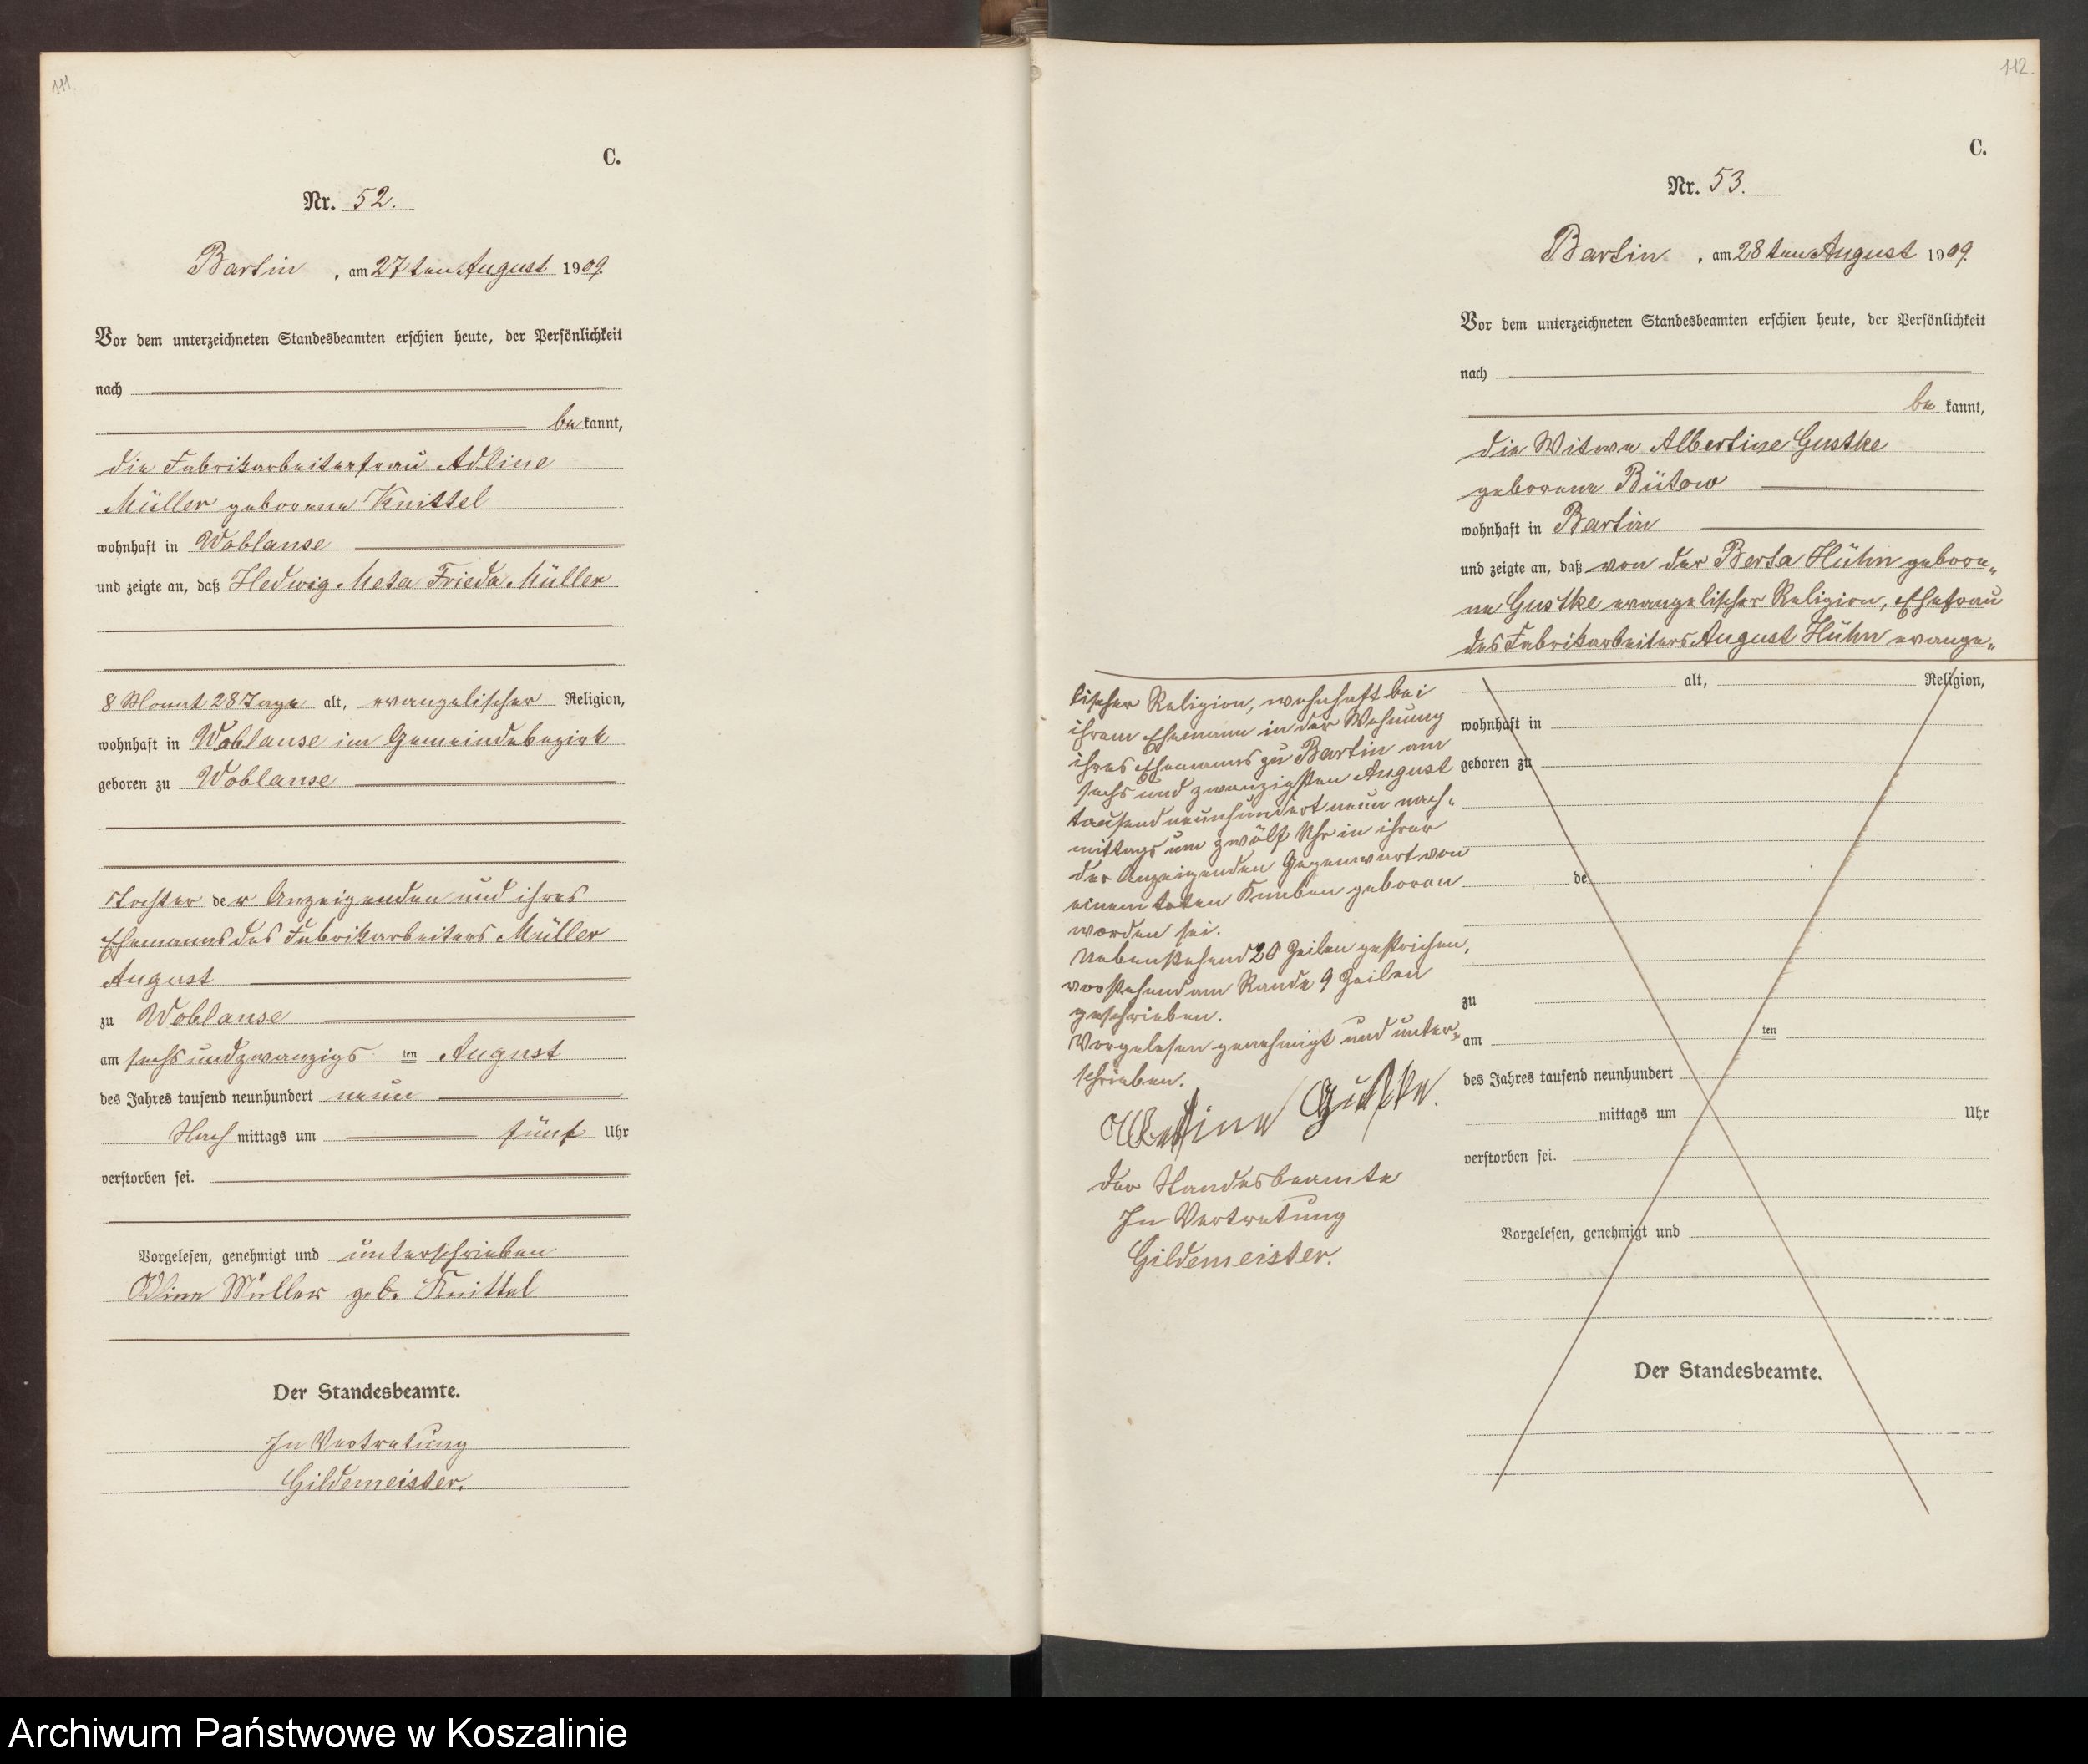 111.
C.
Nr. 52.
Bartin, am 27ten August 1909.
Vor dem unterzeichneten Standesbeamten erschien heute, der Persönlichkeit
nach
be kannt,
die Fabrikarbeiterfrau Adline
Müller geborene Knittel
wohnhaft in Woblanse
und zeigte an, daß Hedwig Meta Frieda Müller
8 Monat 28 Tage alt, evangelischer Religion,
wohnhaft in Woblanse im Gemeindebezirk
geboren zu Woblanse
Tochter der Anzeigenden und ihres
Ehemanns des Fabrikarbeiters Müller
August
zu Woblanse
am sechsundzwanzigs ten August
des Jahres tausend neunhundert neun
Nach mittags um fünf Uhr
verstorben sei.
Vorgelesen, genehmigt und unterschrieben
Adline Müller geb. Knittel
Der Standesbeamte.
In Vertretung
Gildemeister.
112.
C.
Nr. 53.
Bartin, am 28ten August 1909.
Vor dem unterzeichneten Standesbeamten erschien heute, der Persönlichkeit
nach
be kannt,
die Witwe Albertine Gustke
geborene Bütow
wohnhaft in Bartin
und zeigte an, daß von der Berta Hühn gebore„
ne Gustke evangelischer Religion, Ehefrau
des Fabrikarbeiters August Hühn evange„
lischer Religion, wohnhaft bei
ihrem Ehemann in der Wohnung
ihres Ehemanns zu Bartin am
sechs und zwanzigsten August
tausend neunhundert neun nach„
mittags um zwölf Uhr in ihrer
der Anzeigenden Gegenwart von
einem toten Knaben geboren
worden sei.
Nebenstehend 20 Zeilen gestrichen,
vorstehend am Rande 9 Zeilen
geschrieben.
Vorgelesen genehmigt und unter„
schrieben.
Albertine Gustke.
der Standesbeamte
In Vertretung
Gildemeister.
alt, Religion,
wohnhaft in
geboren zu
de
zu
am ten
des Jahres tausend neunhundert
mittags um Uhr
verstorben sei.
Vorgelesen, genehmigt und
Der Standesbeamte.
Archiwum Państwowe w Koszalinie